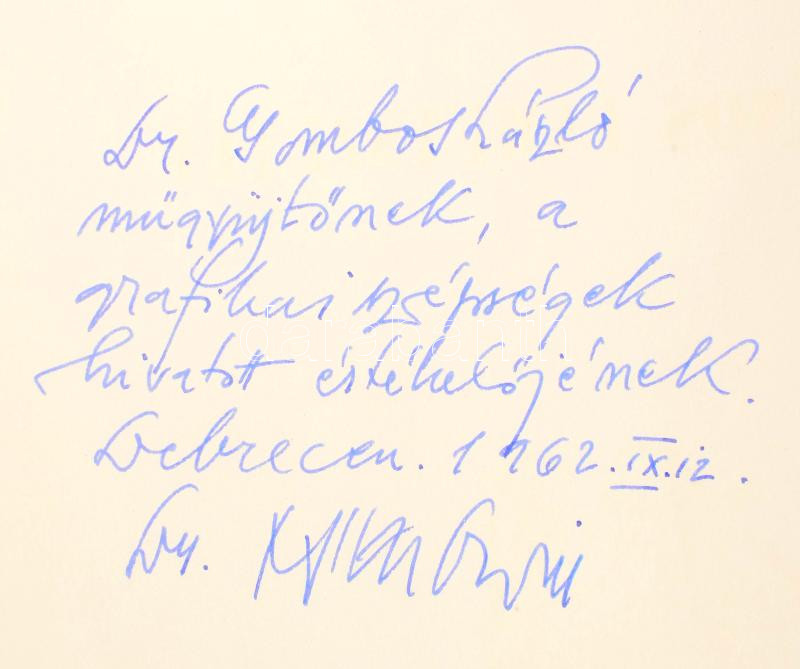 Dr. Gombos László
műgyűjtőnek, a
grafikai szépségek
hivatott értékelőjének.
Debrecen. 1962.IX.12.
Dr.